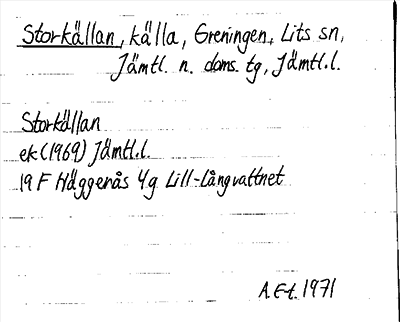 Storkällan, källa, Greningen, Lits sn,
Jämtl. n. doms. tg, Jämtl.l.
Storkällan
ek (1969) Jämtl.l.
19 F Häggenås 4g Lill-Långvattnet
A. E-t. 1971